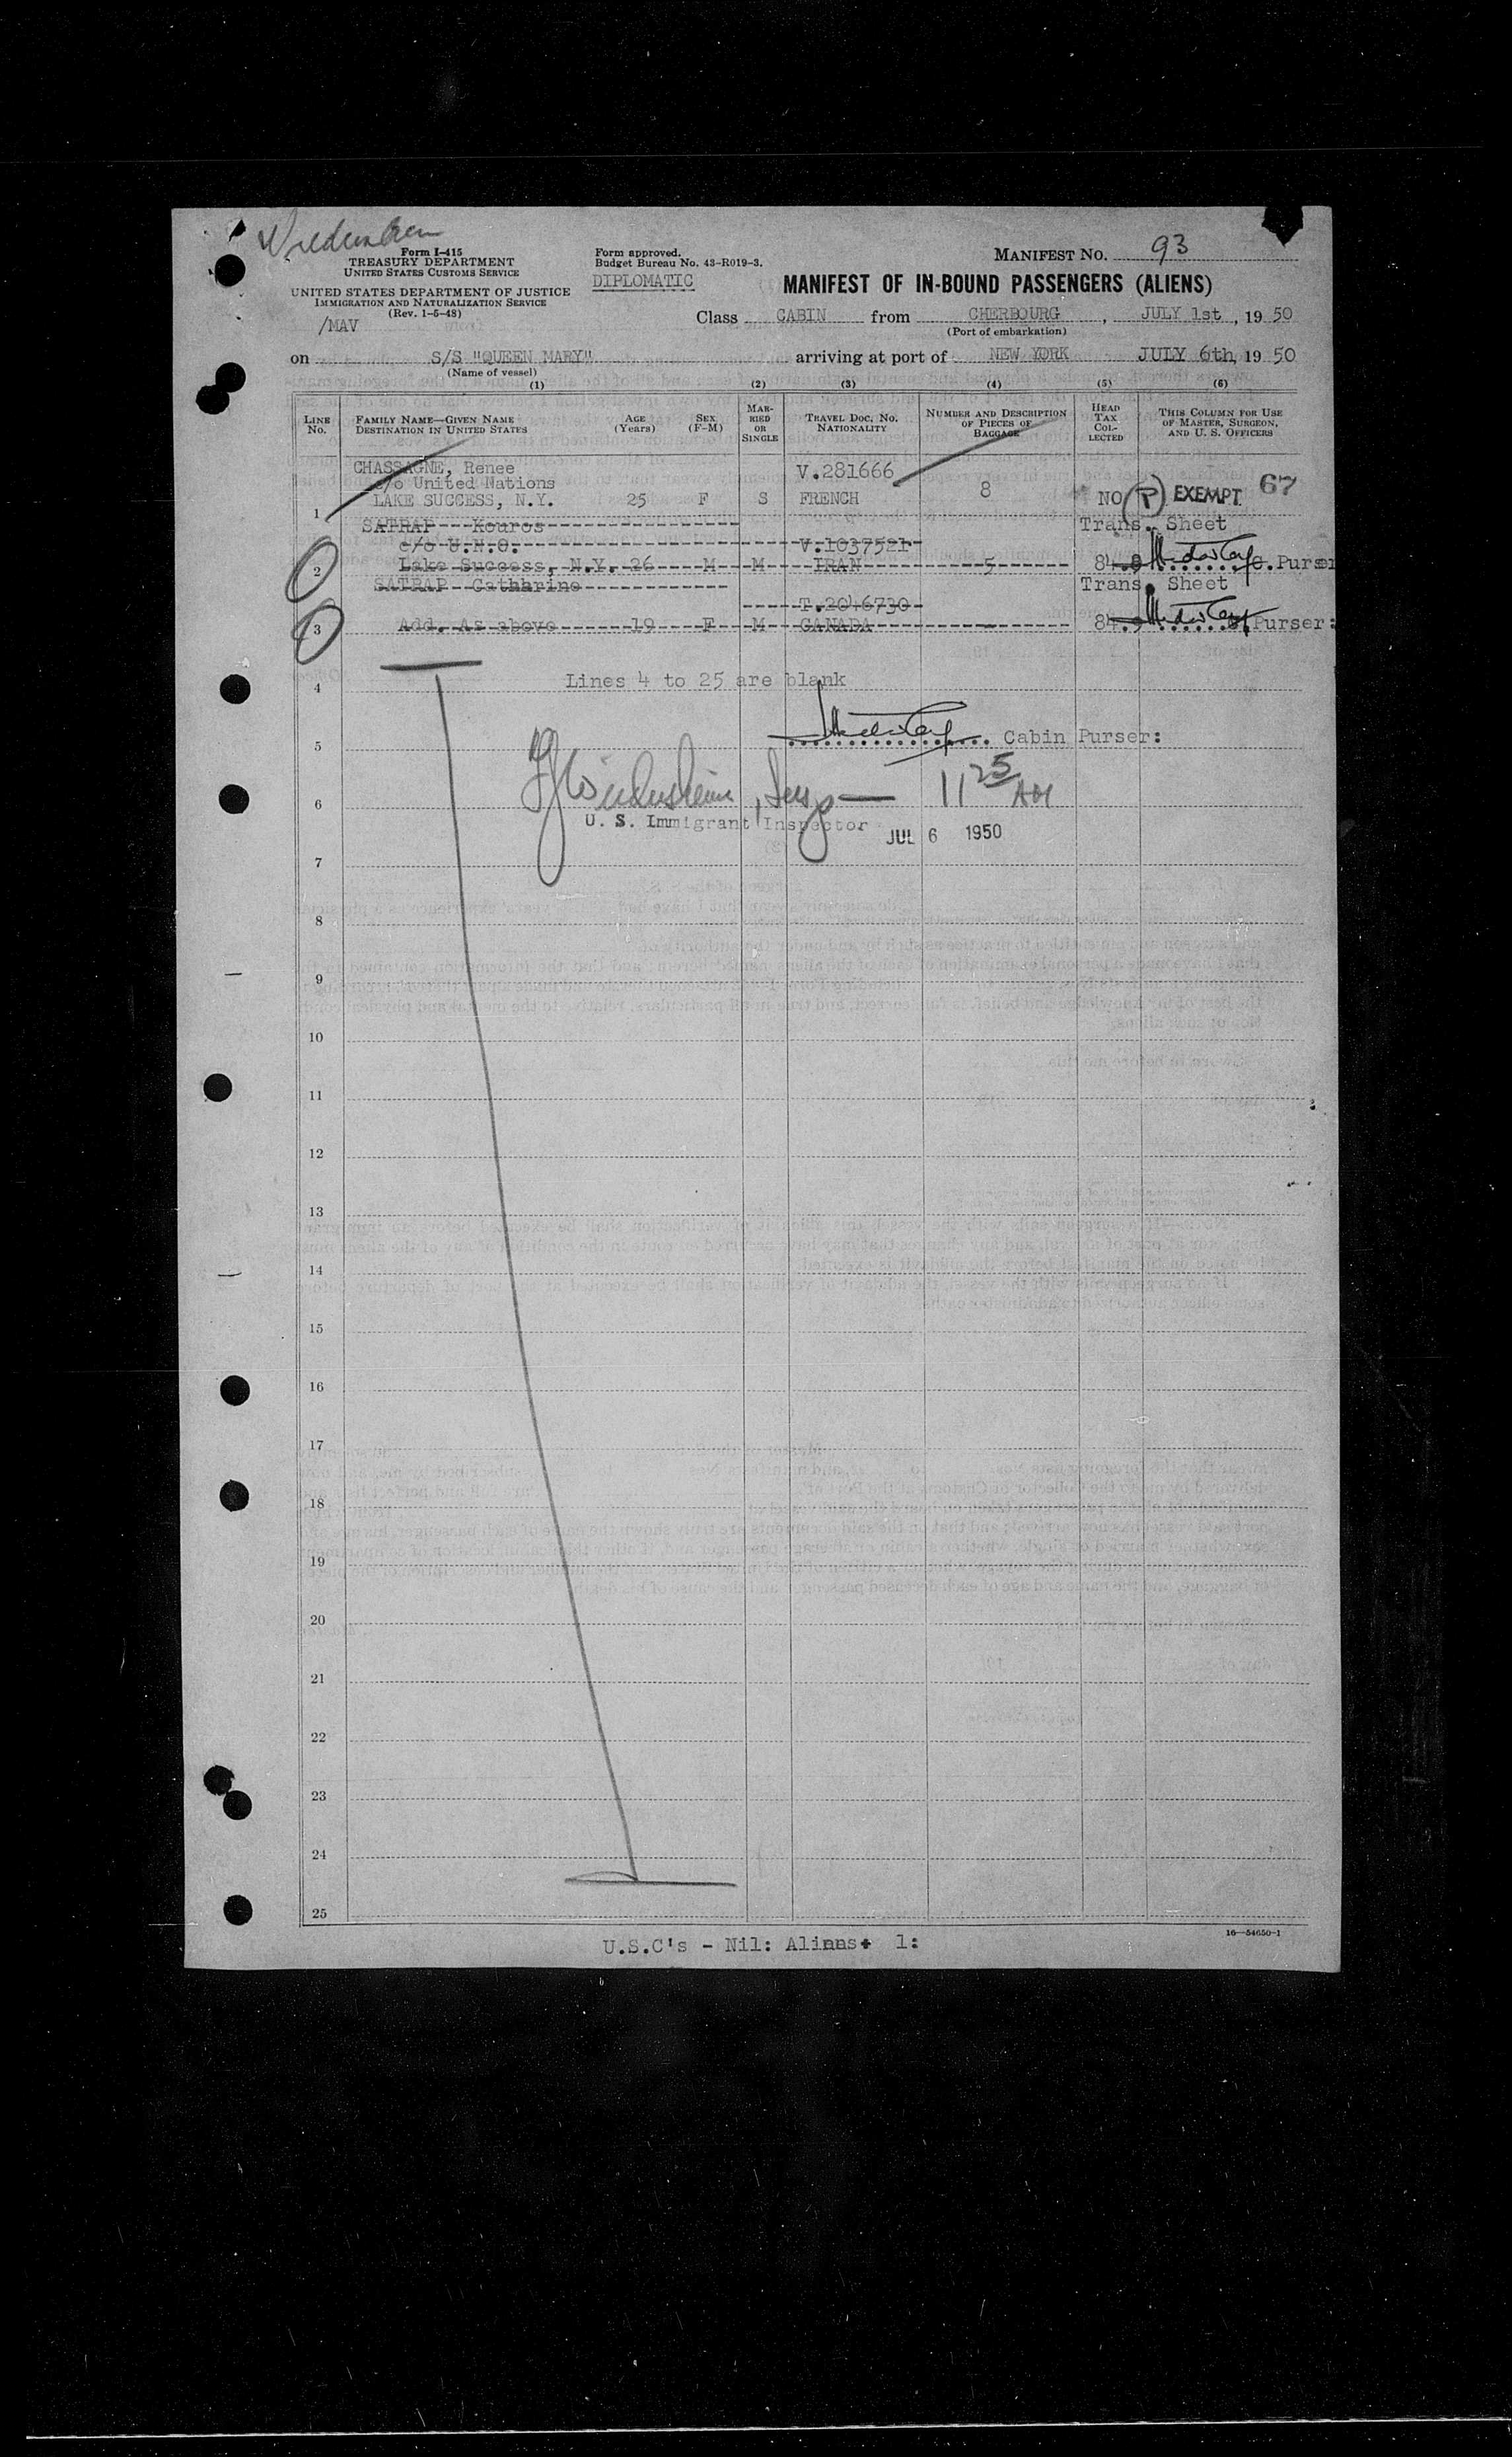 Form I-415
TREASURY DEPARTMENT
UNITED STATES CUSTOMS SERVICE
UNITED STATES DEPARTMENT OF JUSTICE
IMMIGRATION AND NATURALIZATION SERVICE
(Rev. 1-5-48)
/MAV
Form approved.
Budget Bureau No. 43-R019-3.
DIPLOMATIC
MANIFEST NO. 93
MANIFEST OF IN-BOUND PASSENGERS (ALIENS)
Class CABIN from CHERBOURG, JULY 1st, 19 50
(Port of embarkation)
on S/S "QUEEN MARY" arriving at port of NEW YORK JULY 6th, 19 50
(Name of vessel)
(1) (2) (3) (4) (5) (6)
LINE No. FAMILY NAME—GIVEN NAME DESTINATION IN UNITED STATES AGE (Years) SEX (F-M) MARRIED OR SINGLE TRAVEL DOC. NO. NATIONALITY NUMBER AND DESCRIPTION OF PIECES OF BAGGAGE HEAD TAX COLLECTED THIS COLUMN FOR USE OF MASTER, SURGEON, AND U. S. OFFICERS
CHASSAGNE, Renee V.281666
c/o United Nations
1 LAKE SUCCESS, N.Y. 25 F S FRENCH 8 NO (P) EXEMPT 67
SATRAP Kouros Trans. Sheet
c/o U.N.O. V.1037521
2 Lake Success, N.Y. 26 M M IRAN 5 84 C.Purser
SATRAP Cathhrine Trans. Sheet
T.2046730
3 Add. As above 19 F M CANADA - 84 Purser:
4 Lines 4 to 25 are blank
5 Cabin Purser:
6 11 25 AM
U. S. Immigrant Inspector JUL 6 1950
7
8
9
10
11
12
13
14
15
16
17
18
19
20
21
22
23
24
25
16—54650-1
U.S.C's - Nil: Aliens+ 1: